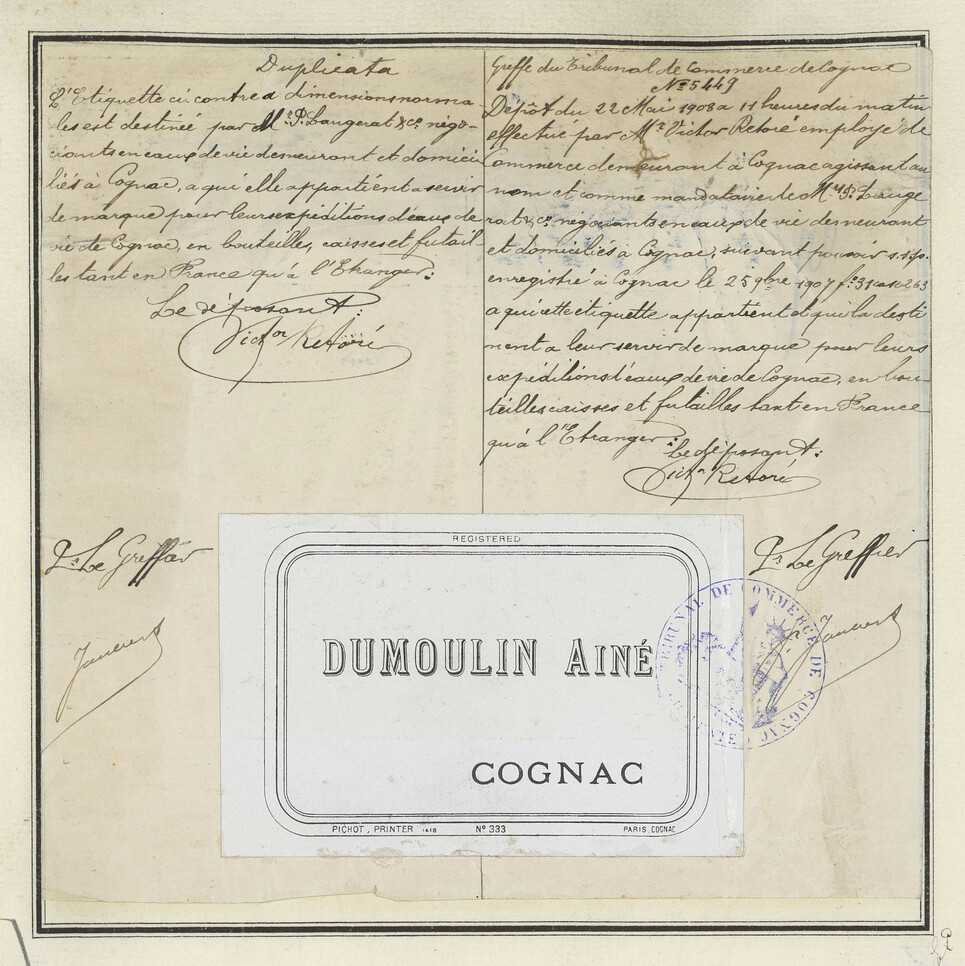 Duplicata
L'Etiquette ci contre a dimensions norma-
les est destinée par Mrs P. Laugerat & Co négo-
ciants en eaux de vie demeurant et domici
liés à Cognac, a qui elle appartient a servir
de marque pour leurs expéditions d'eaux de
vie de Cognac, en bouteilles, caisses et futail-
les tant en France qu'à l'Etranger:
Le déposant:
Victor Retoré
Pr Le Greffier
Greffe du Tribunal de Commerce de Cognac
No 5449
Dépôt du 22 Mai 1908 a 11 heures du matin
effectué par Mr Victor Retoré employé de
Commerce demeurant à Cognac agissant au
nom et comme mandataire de Mrs P. Lauge
rat & Co négociants en eaux de vie demeurant
et domiciliés à Cognac, suivant pouvoir s.s.p.
enregistré à Cognac le 25 9bre 1907 fo 31 case 263
a qui cette étiquette appartient et qui la desti
nent a leur servir de marque pour leurs
expéditions d'eaux de vie de Cognac, en bou-
teilles caisses et futailles tant en France
qu'à l'Etranger:
Le déposant:
Victor Retoré
Pr Le Greffier
REGISTERED
DUMOULIN AINÉ
COGNAC
PICHOT, PRINTER No 333 PARIS. COGNAC
TRIBUNAL DE COMMERCE DE COGNAC